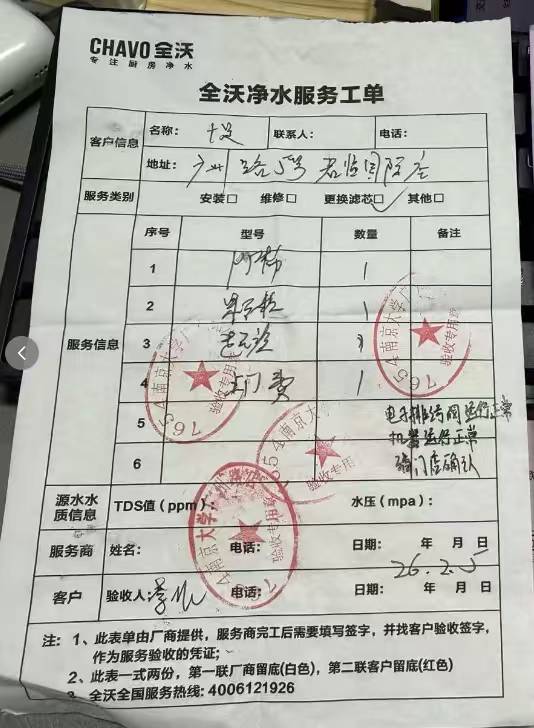 CHAVO 全沃
专注厨房净水
全沃净水服务工单
客户信息
名称：
联系人：
电话：
地址：广州路
服务类别
安装□ 维修□ 更换滤芯□ 其他□
服务信息
序号 型号 数量 备注
1 1
2 1
3
4 上门费 1
5
6
电子排污阀运行正常
机器运行正常
确认
源水水质信息
TDS值（ppm）：
水压（mpa）：
服务商
姓名：
电话：
日期： 年 月 日
客户
验收人：
电话：
日期： 年 月 日
26.2.5
南京大学
验收专用章
7654
注：1、此表单由厂商提供，服务商完工后需要填写签字，并找客户验收签字，
作为服务验收的凭证；
2、此表一式两份，第一联厂商留底(白色)，第二联客户留底(红色)
3、全沃全国服务热线：4006121926